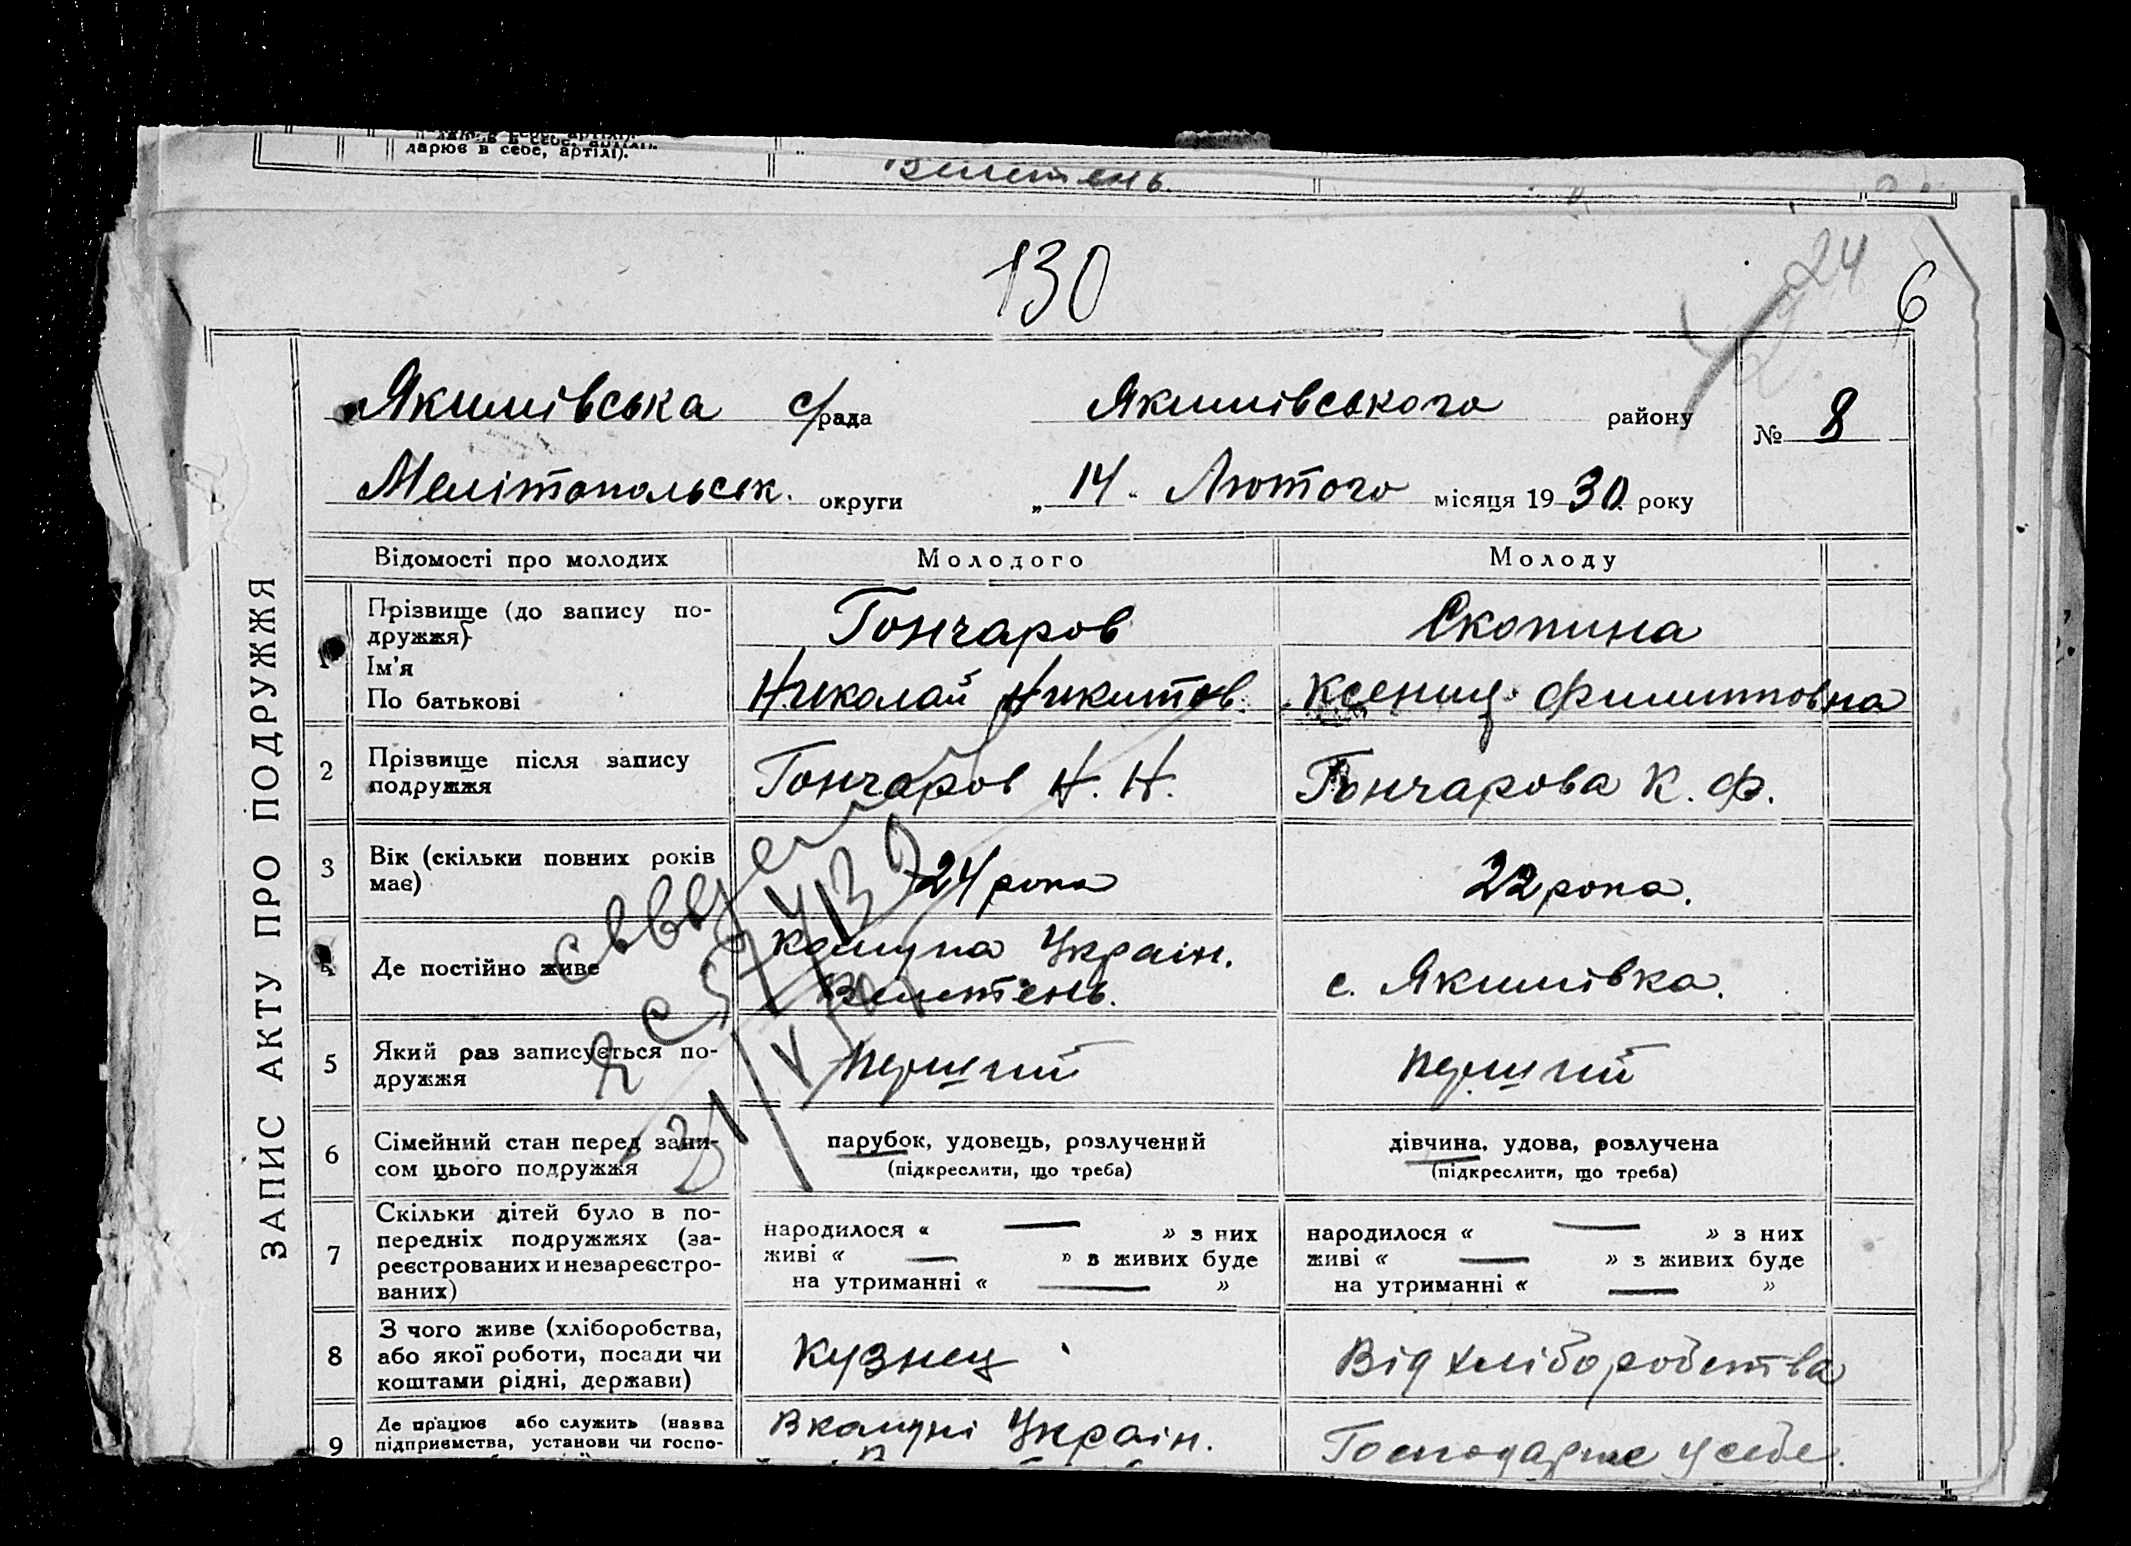 дарює в себе, артілі).
Велетень.
130
24
6
Якимівська с/рада Якимівського району
№ 8
Мелітопольськ. округи „ 14 " Лютого місяця 1930 року
ЗАПИС АКТУ ПРО ПОДРУЖЖЯ
Відомості про молодих Молодого Молоду
1
Прізвище (до запису по-
дружжя)
Ім'я
По батькові
Гончаров
Николай Никитов.
Скопина
Ксения Филипповна
2
Прізвище після запису
подружжя
Гончаров Н. Н.
Гончарова К. Ф.
3
Вік (скільки повних років
має)
24 рока
22 рока.
4
Де постійно живе
Комуна Украін.
Велетень.
с. Якимівка.
5
Який раз записується по-
дружжя
Перший
Перший
6
Сімейний стан перед запи-
сом цього подружжя
парубок, удовець, розлучений
(підкреслити, що треба)
дівчина, удова, розлучена
(підкреслити, що треба)
7
Скільки дітей було в по-
передніх подружжях (за-
реєстрованих и незареєстро-
ваних)
народилося « — » з них
живі « — » з живих буде
на утриманні « — »
народилося « — » з них
живі « — » з живих буде
на утриманні « — »
8
З чого живе (хліборобства,
або якої роботи, посади чи
коштами рідні, держави)
Кузнец
Від хліборобства
9
Де працює або служить (назва
підприємства, установи чи госпо-
В комуні Украін.
Господарює у себе.